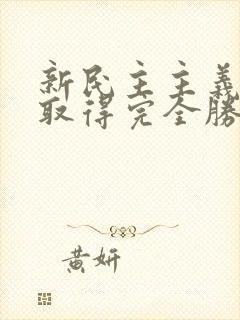 新民主主義
取得完全勝
黄妍